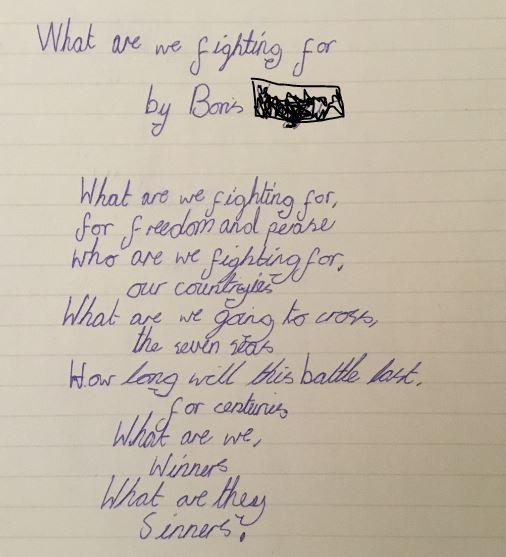 What are we fighting for
by Boris
What are we fighting for,
for freedom and pease
who are we fighting for,
our countryies
What are we going to cross,
the seven seas
How long will this battle last,
for centuries
What are we,
Winners
What are they
Sinners?